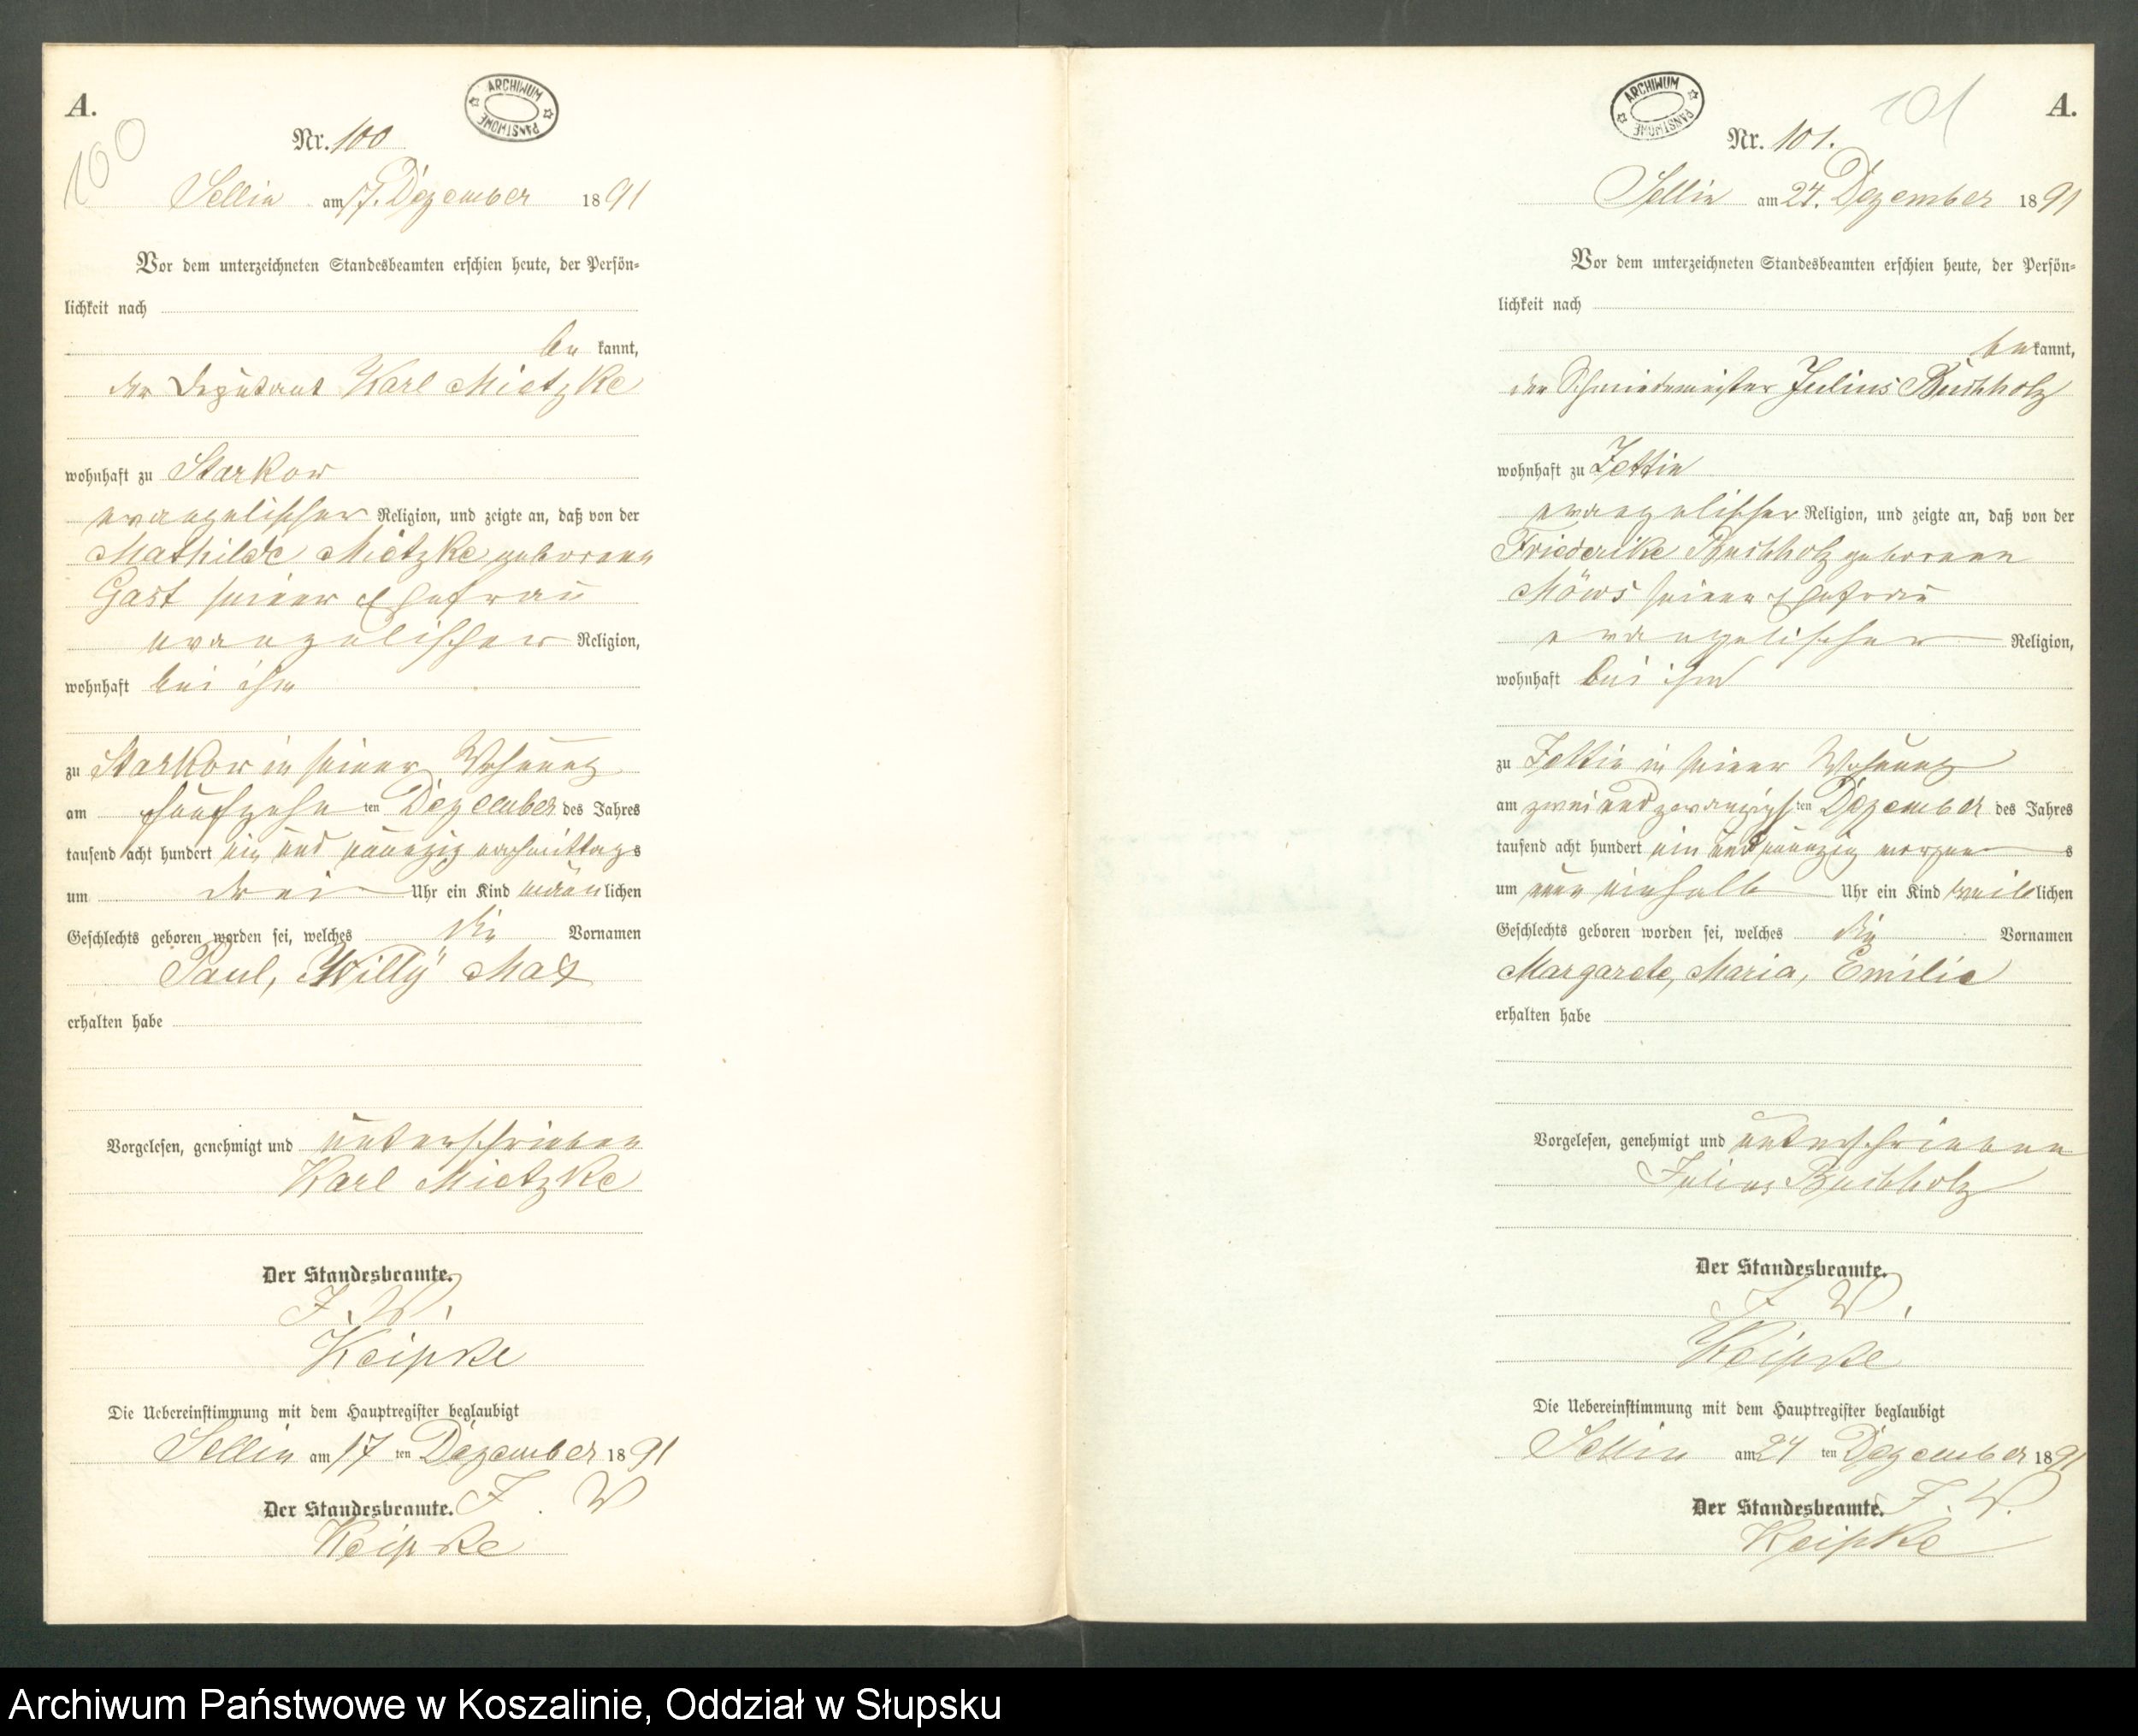 A.
ARCHIWUM PAŃSTWOWE
100
Nr. 100
Sellin am 17. Dezember 1891
Vor dem unterzeichneten Standesbeamten erschien heute, der Persön-
lichkeit nach
be kannt,
der Deputant Karl Mietzke
wohnhaft zu Starkow
evangelischer Religion, und zeigte an, daß von der
Mathilde Mietzke geborenen
Gast seiner Ehefrau
evangelischer Religion,
wohnhaft bei ihm
zu Starkow in seiner Wohnung
am fünfzehn ten Dezember des Jahres
tausend acht hundert ein und neunzig nachmittags
um drei Uhr ein Kind männlichen
Geschlechts geboren worden sei, welches die Vornamen
Paul, Willy Max
erhalten habe
Vorgelesen, genehmigt und unterschrieben
Karl Mietzke
Der Standesbeamte.
J. V.
Keipke
Die Uebereinstimmung mit dem Hauptregister beglaubigt
Sellin am 17 ten Dezember 1891
Der Standesbeamte. J. V
Keipke
A.
ARCHIWUM PAŃSTWOWE
101
Nr. 101.
Sellin am 24. Dezember 1891
Vor dem unterzeichneten Standesbeamten erschien heute, der Persön-
lichkeit nach
bekannt,
der Schmiedemeister Julius Buchholz
wohnhaft zu Jettin
evangelischer Religion, und zeigte an, daß von der
Friederike Buchholz geborenen
Möws seiner Ehefrau
evangelischer Religion,
wohnhaft bei ihm
zu Jettin in seiner Wohnung
am zwei und zwanzigsten Dezember des Jahres
tausend acht hundert ein und neunzig morgens
um neun einhalb Uhr ein Kind weiblichen
Geschlechts geboren worden sei, welches die Vornamen
Margarete, Maria, Emilie
erhalten habe
Vorgelesen, genehmigt und unterschrieben
Julius Buchholz
Der Standesbeamte.
J. V.
Keipke
Die Uebereinstimmung mit dem Hauptregister beglaubigt
Sellin am 24 ten Dezember 1891
Der Standesbeamte. J. V.
Keipke
Archiwum Państwowe w Koszalinie, Oddział w Słupsku